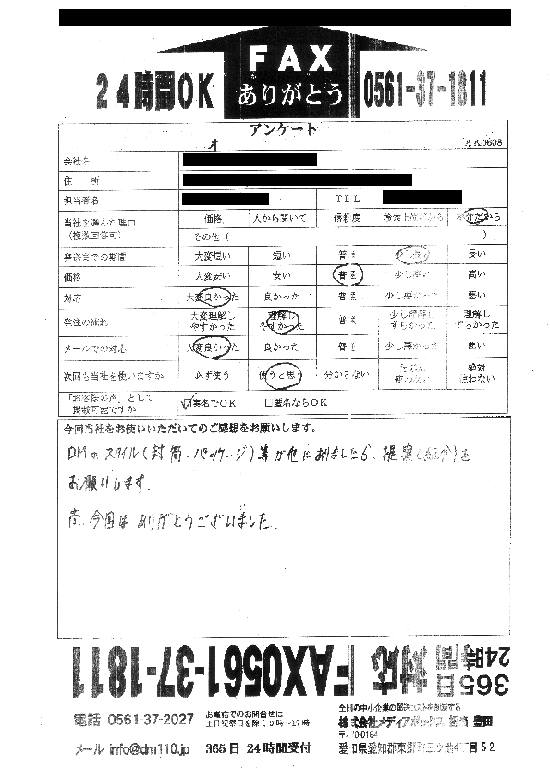 FAX
ありがとう
24時間OK
0561-37-1811
アンケート
会社名
住 所
担当者名 TEL
当社を選んだ理由 価格 人から聞いて 信頼度
(複数回答可) その他( )
発送までの期間 大変短い 短い 普通 少し長い 長い
価格 大変安い 安い 普通 少し高い 高い
対応 大変良かった 良かった 普通 少し悪かった 悪い
発注の流れ 大変理解しやすかった 理解しやすかった 普通 少し理解しづらかった 理解しづらかった
メールでの対応 大変良かった 良かった 普通 少し悪かった 悪い
次回も当社を使いますか 必ず使う 使うと思う 分からない 絶対使わない
「お客様の声」として掲載可能ですか ☑実名でOK □匿名ならOK
今回当社をお使いいただいてのご感想をお願いします。
DMのスタイル(封筒、パッケージ)等が他にありましたら、提案(紹介)を
お願いします。
尚、今回はありがとうございました。
365日24時間対応 FAX0561-37-1811
電話 0561-37-2027
お電話でのお問合せは
メール info@dm110.jp
365日 24時間受付
全国の中小企業の販促コストを削減する
株式会社メディアボックス